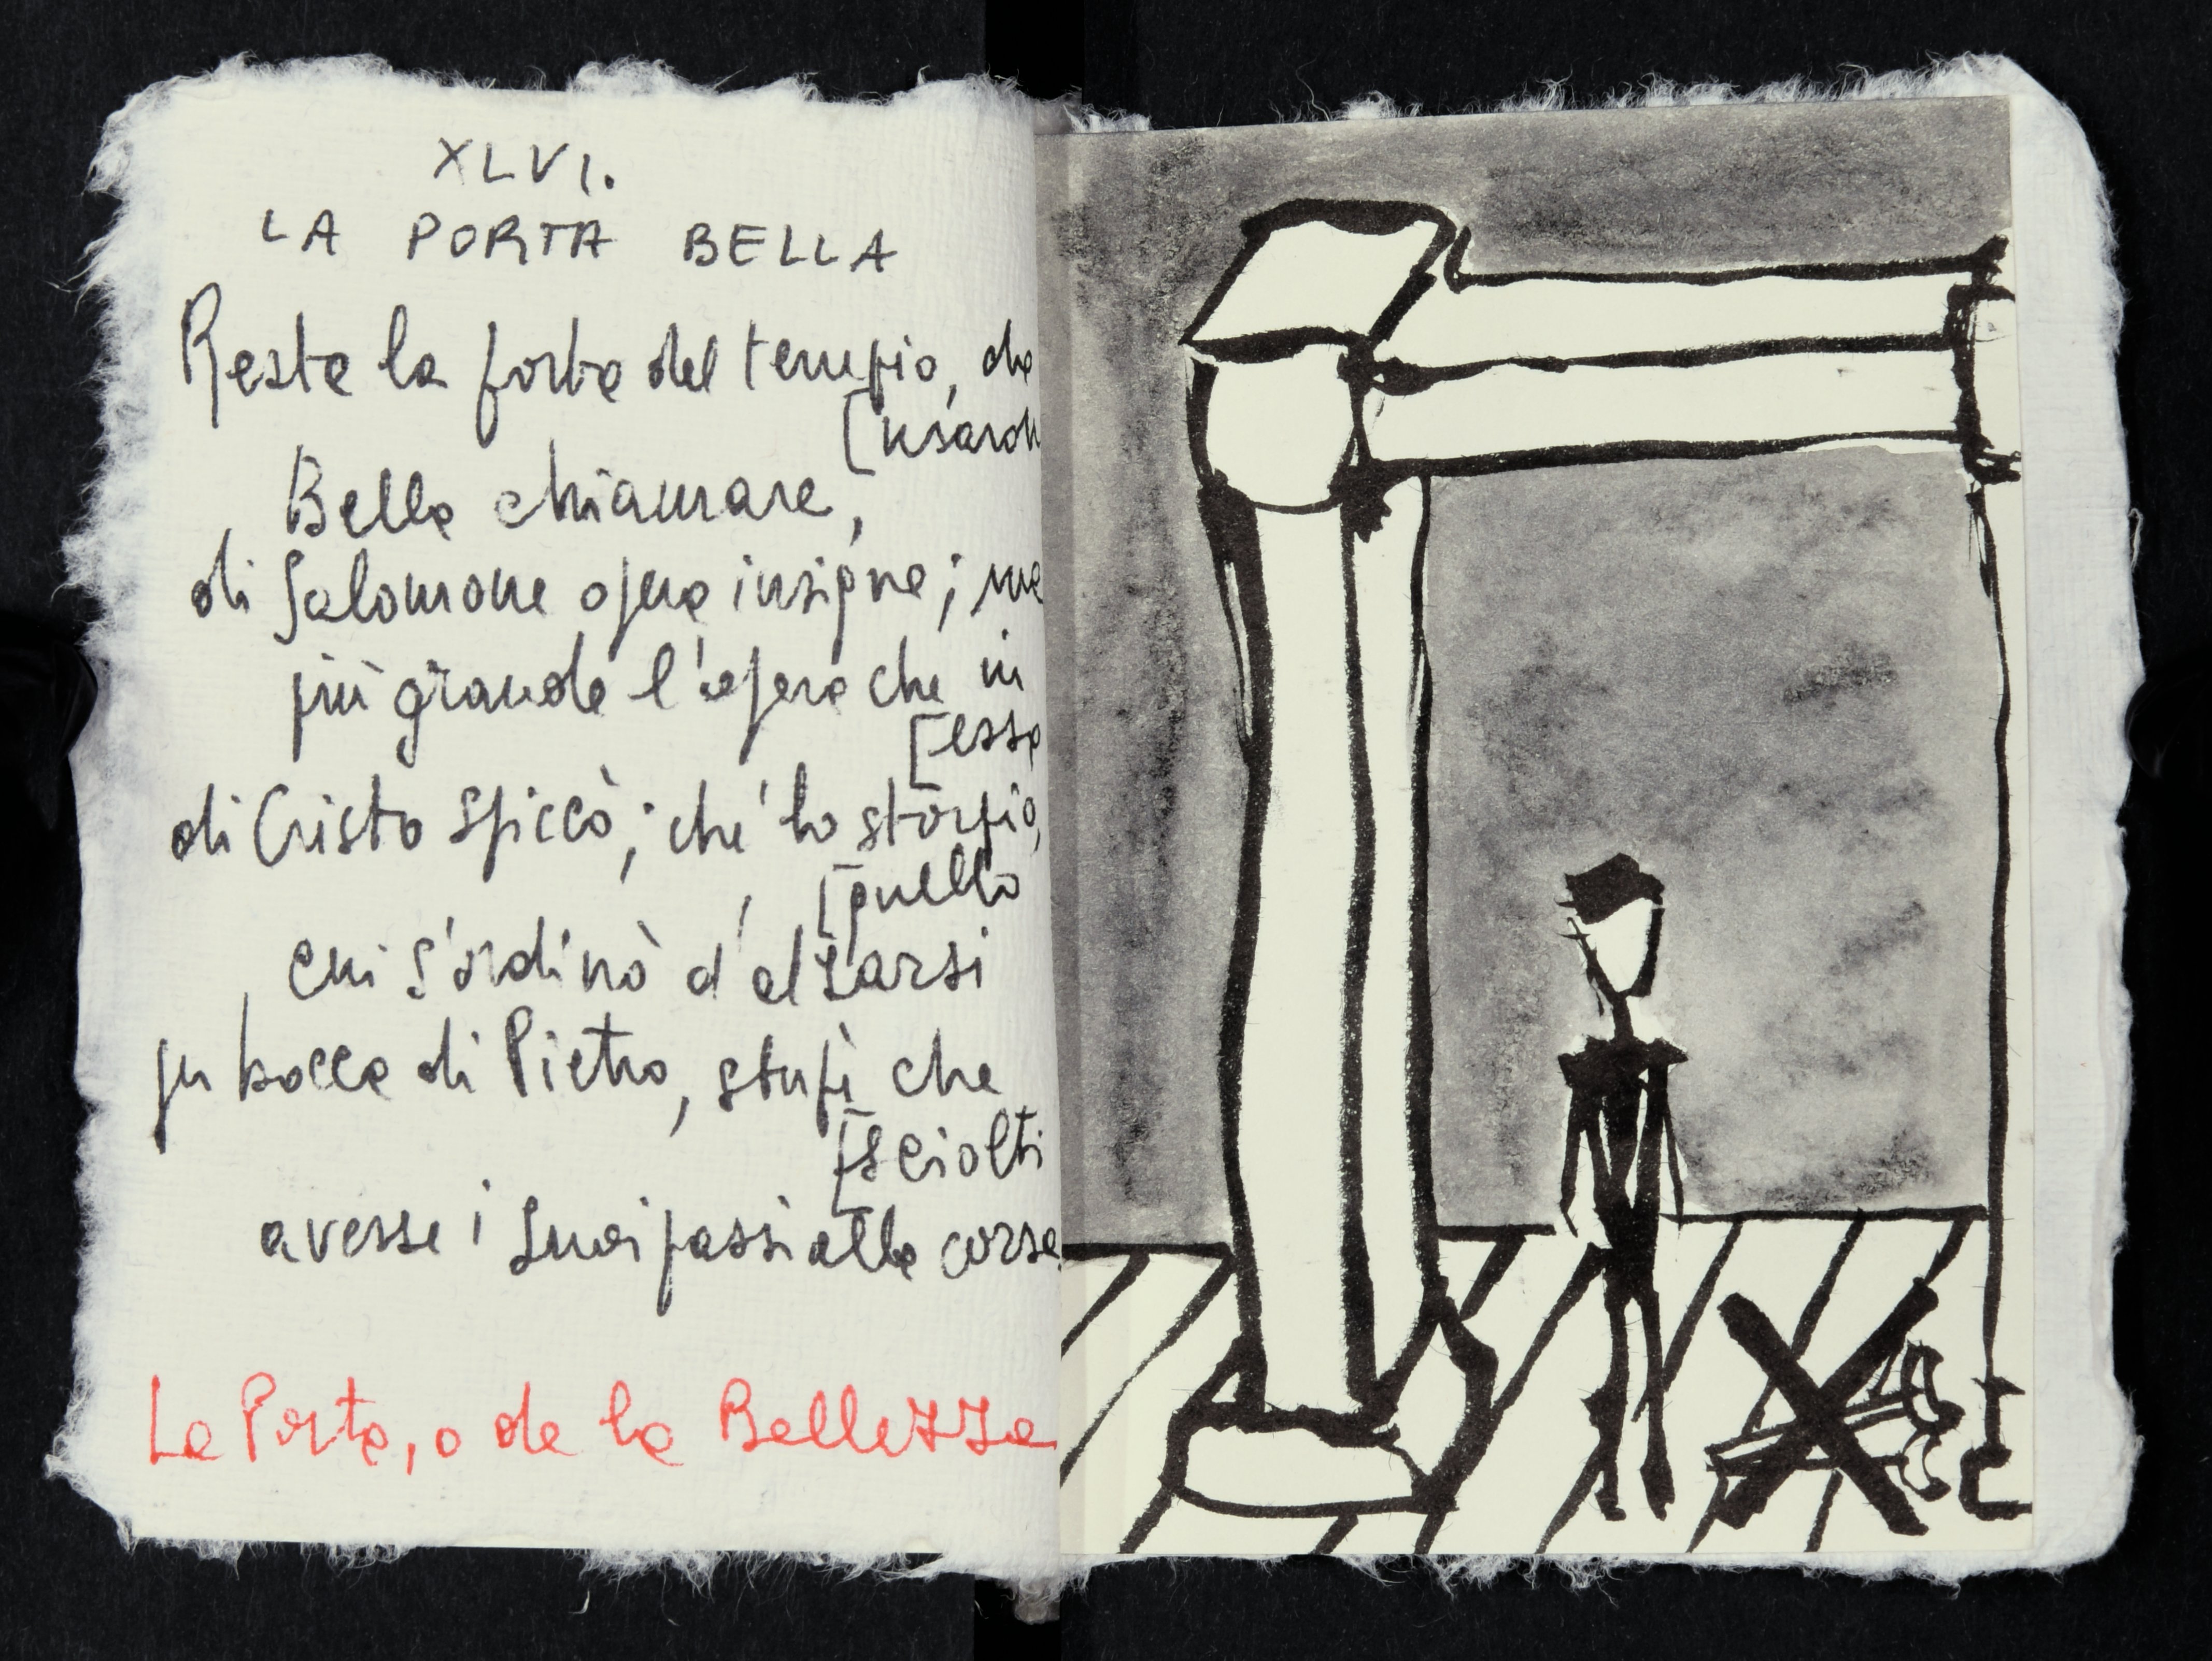 XLVI.
LA PORTA BELLA
Resta la porta del tempio, che
[usaron
Bella chiamare,
di Salomone opera insigne; ma
più grande l'opera che in
[essa
di Cristo spiccò; ché lo storpio,
[quello
cui s'ordinò d'alzarsi
per bocca di Pietro, stupì che
[sciolti
avesse i suoi passi alla corsa.
La Porta, o de la Bellezza